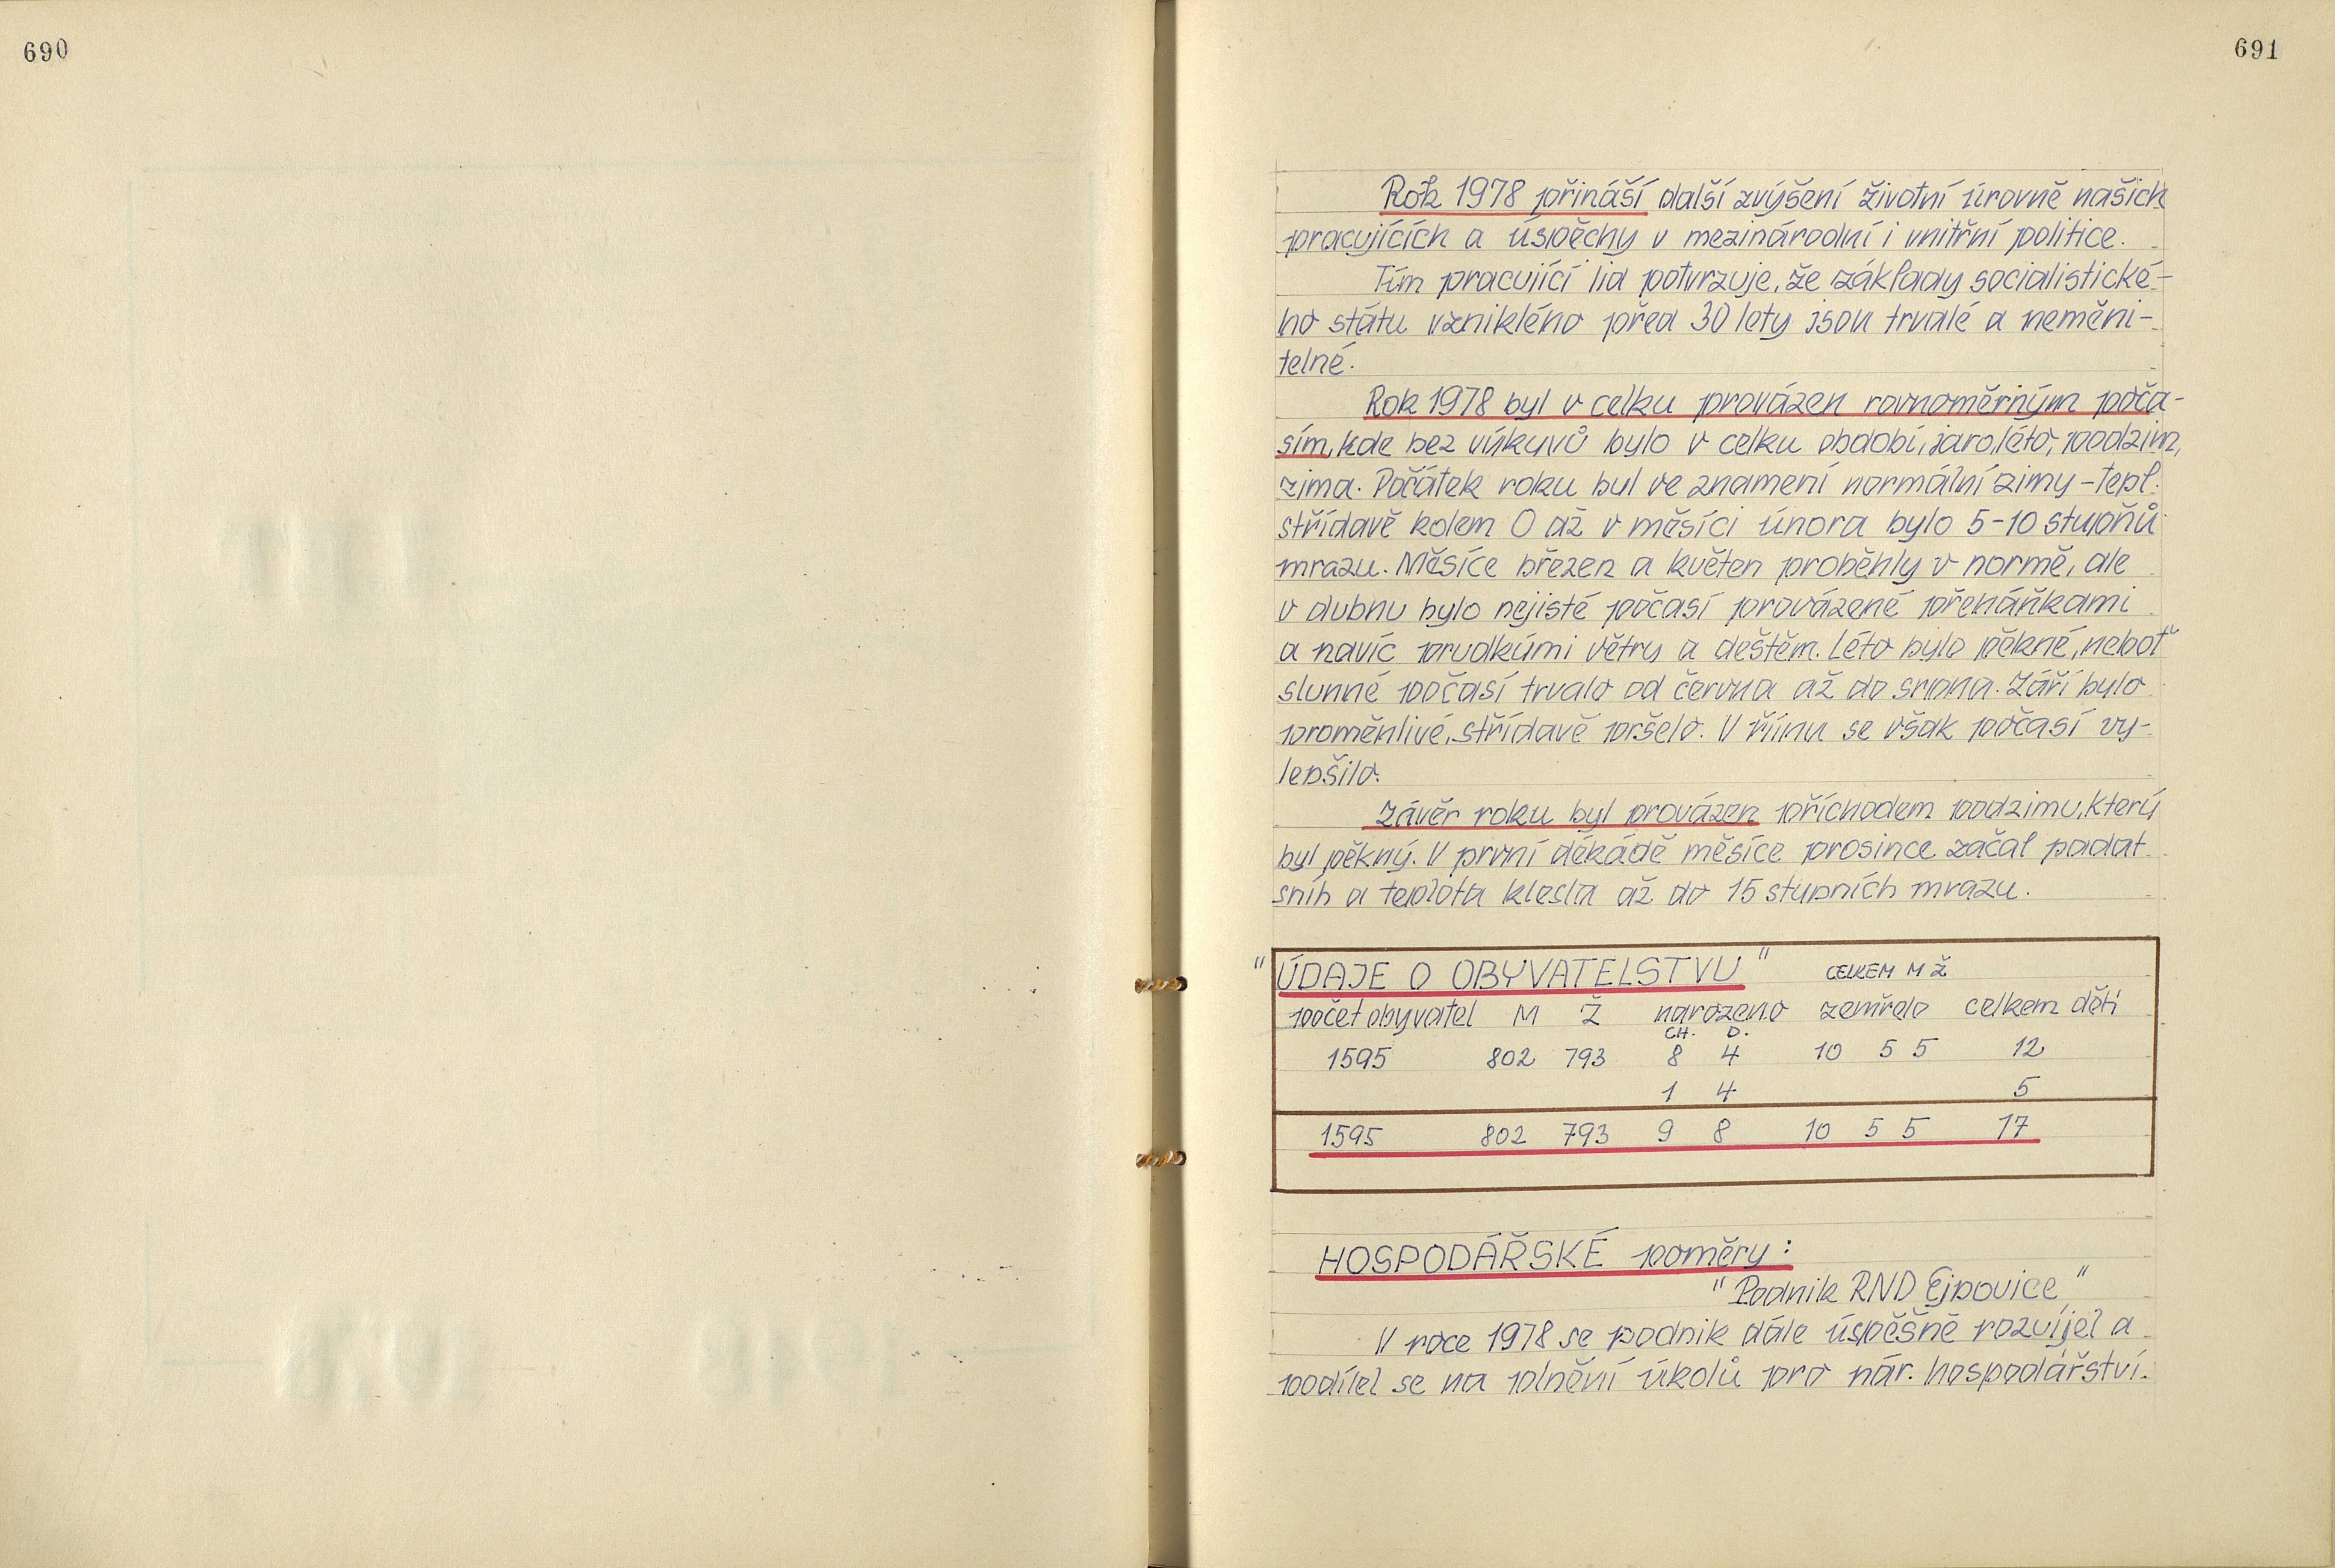 690
691
Rok 1978 přináší další zvýšení životní úrovně našich
pracujících a úspěchy v mezinárodní i vnitřní politice.
Tím pracující lid potvrzuje, že základy socialistické-
ho státu vzniklého před 30 lety jsou trvalé a neměni-
telné.
Rok 1978 byl v celku provázen rovnoměrným poča-
sím, kde bez výkyvů bylo v celku období, jaro, léto, podzim,
zima. Počátek roku byl ve znamení normální zimy - tepl.
střídavě kolem 0 až v měsíci února bylo 5-10 stupňů
mrazu. Měsíce březen a květen proběhly v normě, ale
v dubnu bylo nejisté počasí provázené přeháňkami
a navíc prudkými větry a deštěm. Léto bylo pěkné, neboť
slunné počasí trvalo od června až do srpna. Září bylo
proměnlivé, střídavě pršelo. V říjnu se však počasí vy-
lepšilo.
Závěr roku byl provázen příchodem podzimu, který
byl pěkný. V první dekádě měsíce prosince začal padat
sníh a teplota klesla až do 15 stupních mrazu.
"ÚDAJE O OBYVATELSTVU" CELKEM M Ž
počet obyvatel M Ž narozeno zemřelo celkem dětí
CH. D.
1595 802 793 8 4 10 5 5 12
1 4 5
1595 802 793 9 8 10 5 5 17
HOSPODÁŘSKÉ poměry:
"Podnik RND Ejpovice"
V roce 1978 se podnik dále úspěšně rozvíjel a
podílel se na plnění úkolů pro nár. hospodářství.